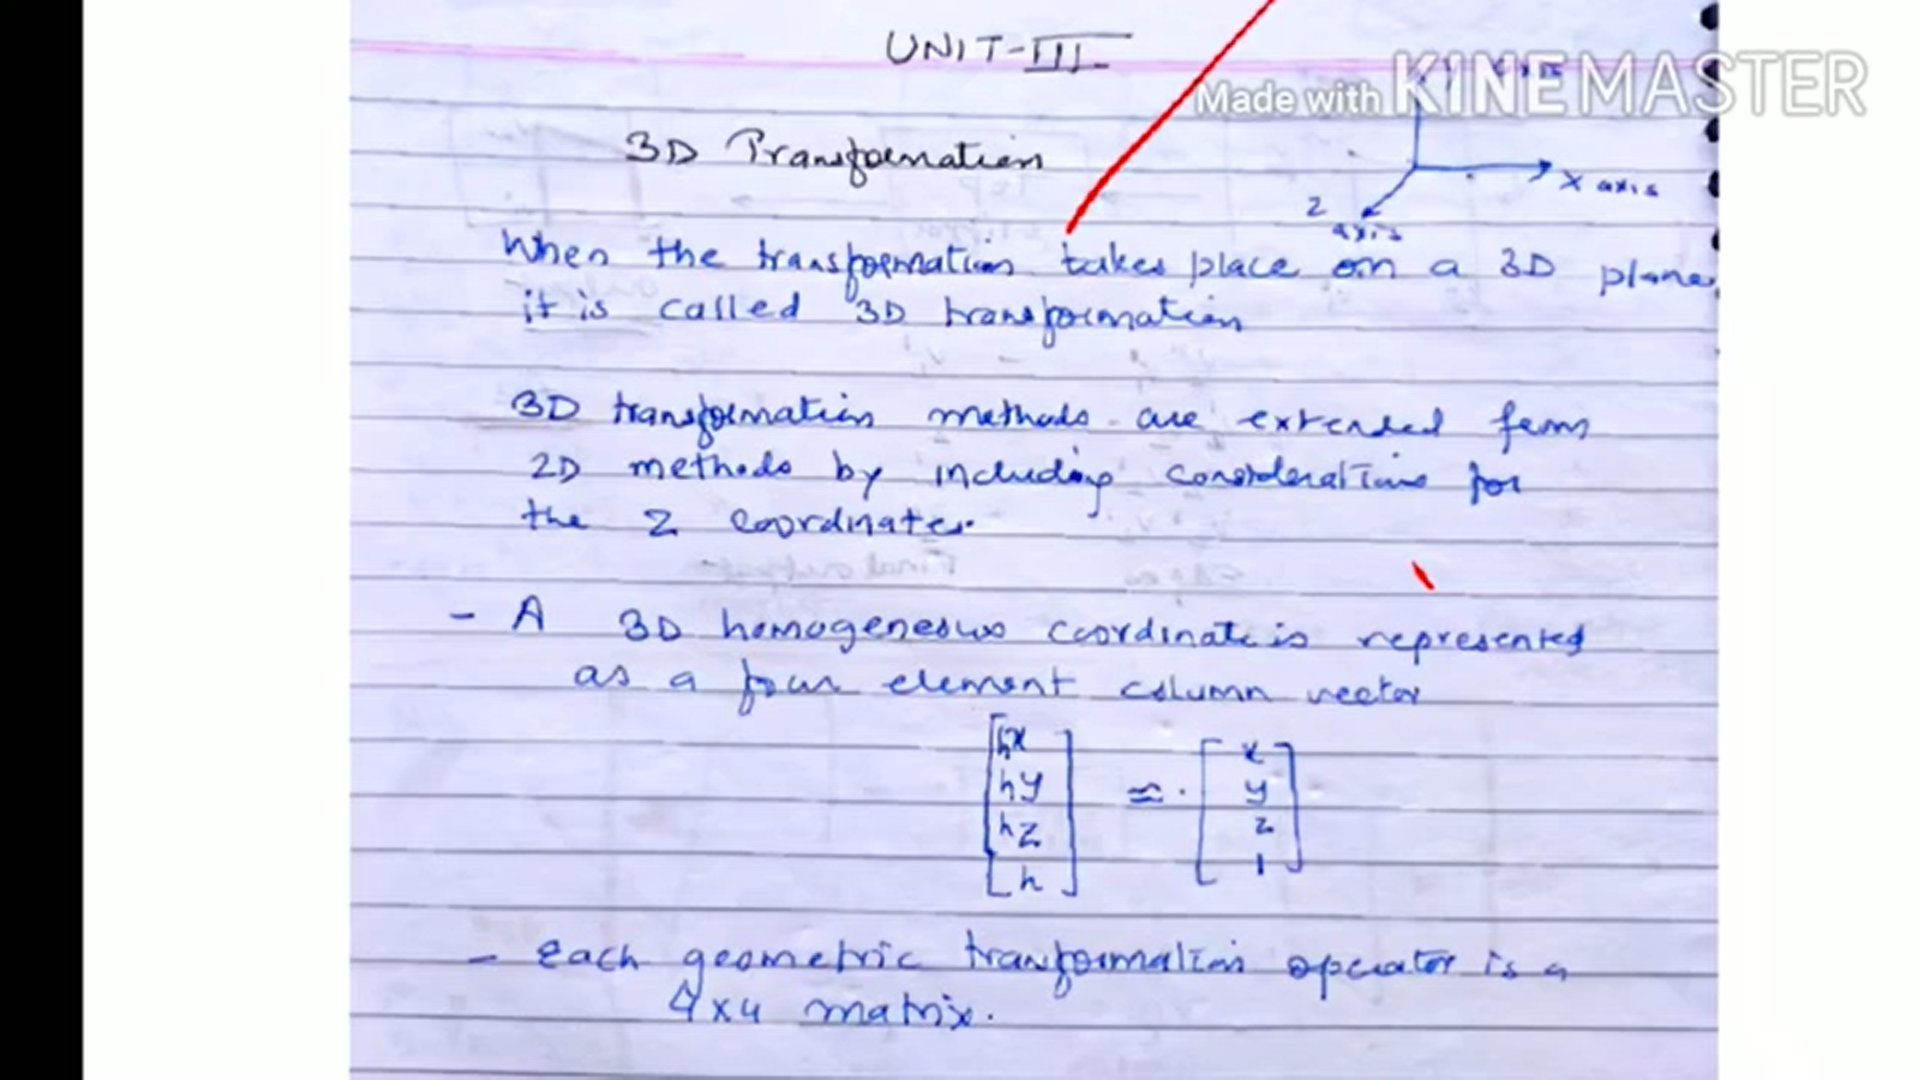 UNIT-III
Made with KINEMASTER
3D Transformation
X axis
Z
axis
When the transformation takes place on a 3D plane
it is called 3D transformation
3D transformation methods are extended from
2D methods by including considerations for
the Z coordinates.
- A 3D homogeneous coordinate is represented
as a four element column vector
[hx hy hz h] ≈ [x y z 1]
- Each geometric transformation operator is a
4x4 matrix.